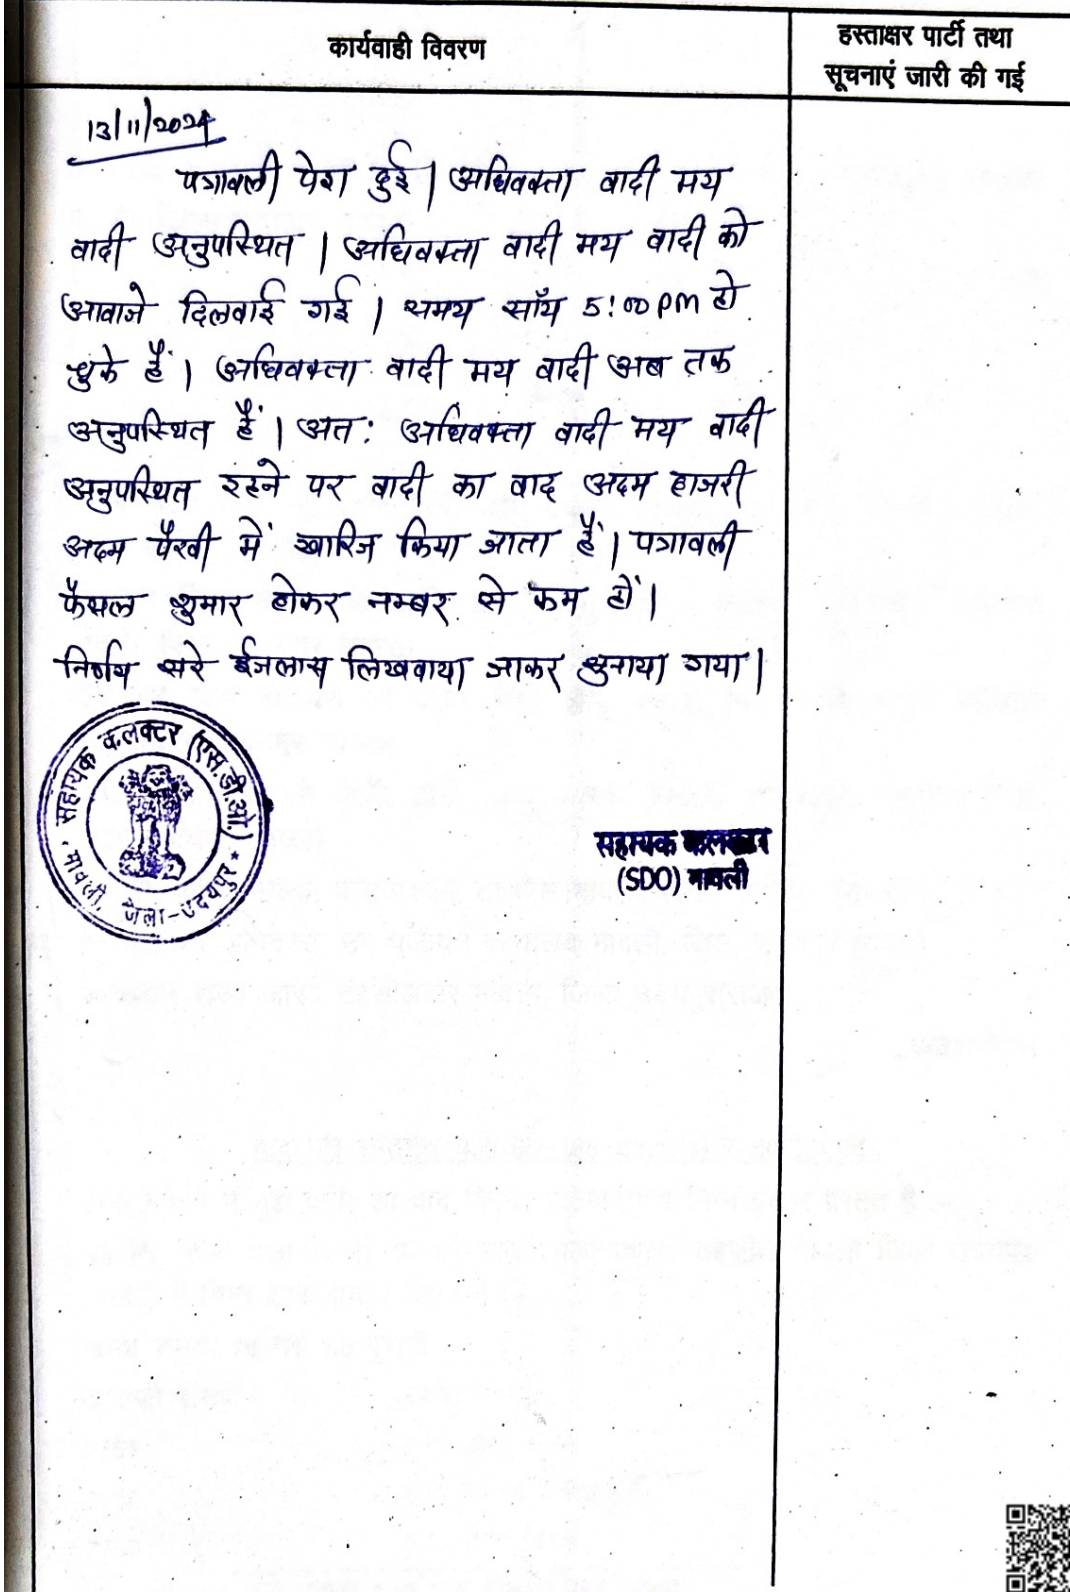 कार्यवाही विवरण
हस्ताक्षर पार्टी तथा
सूचनाएं जारी की गई
13/11/2024
पत्रावली पेश हुई। अधिवक्ता वादी मय
वादी अनुपस्थित। अधिवक्ता वादी मय वादी को
आवाजे दिलवाई गई। समय साँय 5:00 pm हो
चुके हैं। अधिवक्ता वादी मय वादी अब तक
अनुपस्थित हैं। अत: अधिवक्ता वादी मय वादी
अनुपस्थित रहने पर वादी का वाद अदम हाजरी
अदम पैरवी में खारिज किया जाता हैं। पत्रावली
फैसल शुमार होकर नम्बर से कम हों।
निर्णय सरे ईजलास लिखवाया जाकर सुनाया गया।
सहायक कलक्टर (एस.डी.ओ.)
मावली, जिला-उदयपुर
सहायक कलक्टर
(SDO) मावली